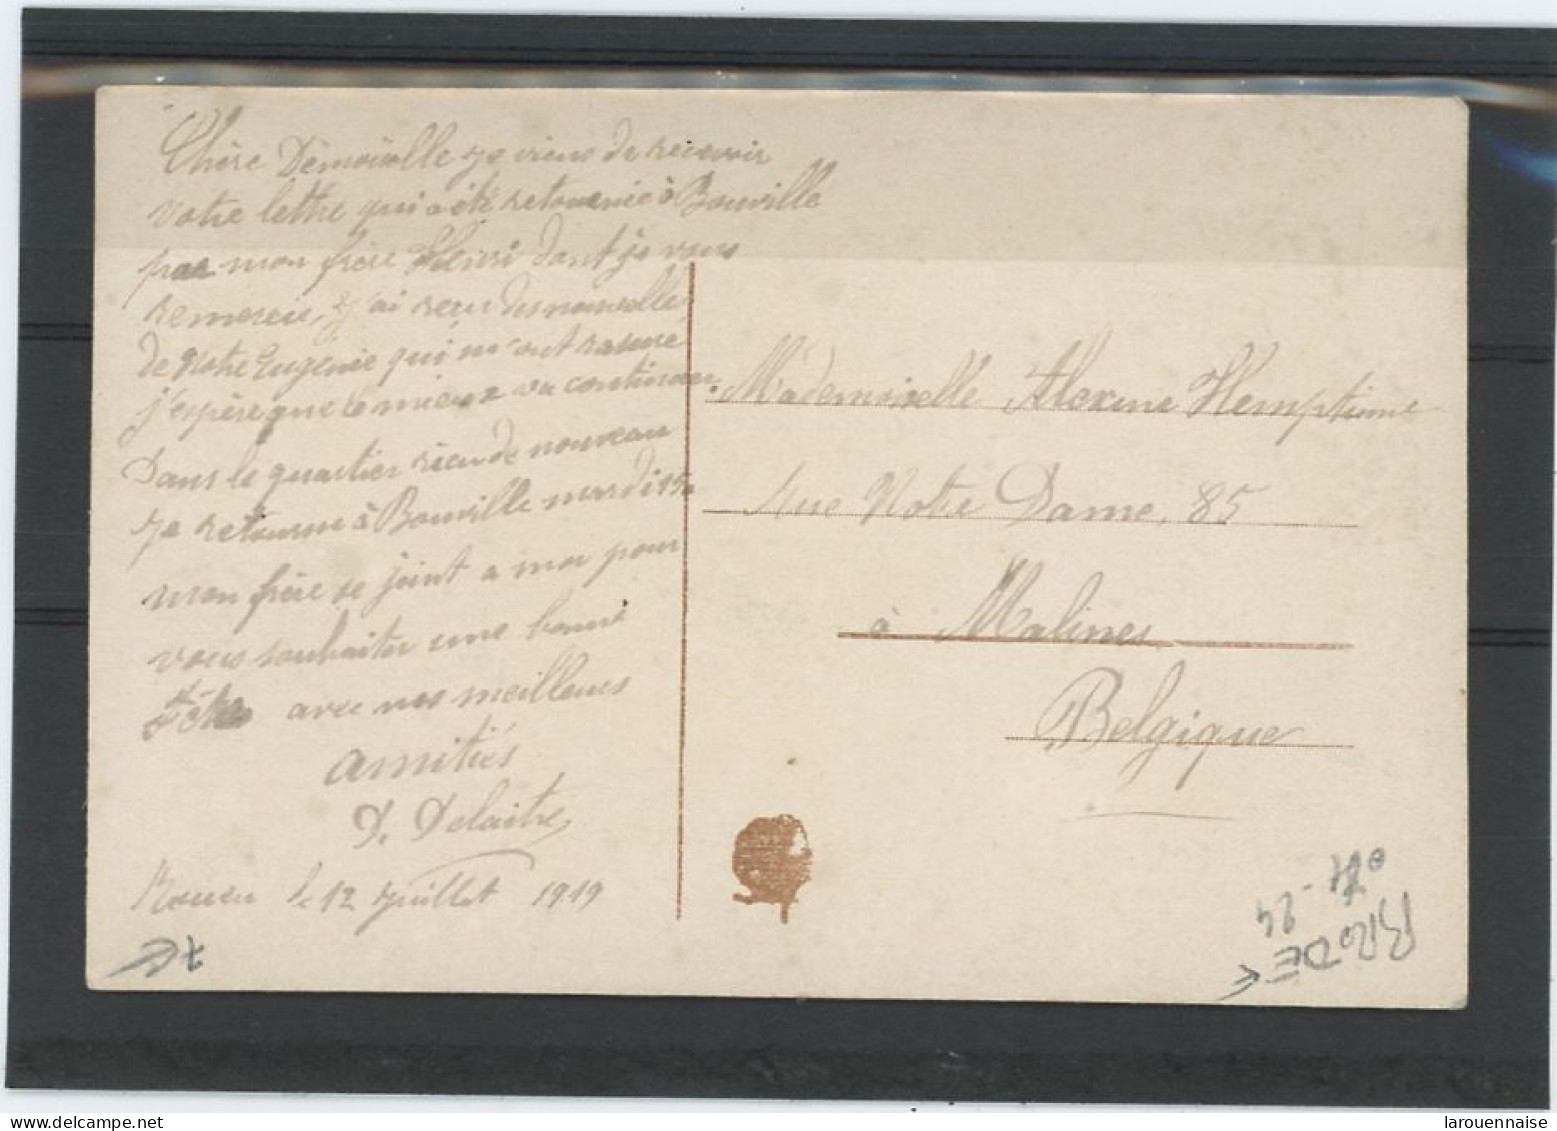 Chère Demoiselle je viens de recevoir
votre lettre qui a été retournée à Bouville
par mon frère Henri dont je vous
remercie, j'ai reçu des nouvelle
de Notre Eugénie qui m'ont rasuré
j'espère que le mieux va continuer.
Dans le quartier rien de nouveau
je retourne à Bouville mardi 15
mon frère se joint a moi pour
vous souhaiter une bonne
fête avec nos meilleures
amitiés
D. Delaitre
Rouen le 12 juillet 1919
Mademoiselle Alexine Hemptinne
Rue Notre Dame, 85
à Malines
Belgique
BRODE
24
7e
www.delcampe.net
larouennaise